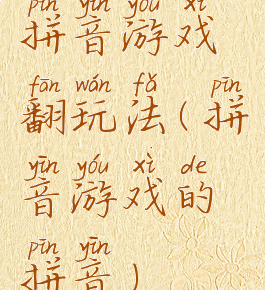 pīn yīn yóu xì
拼音游戏
fān wán fǎ pīn
翻玩法(拼
yīn yóu xì de
音游戏的
pīn yīn
拼音)